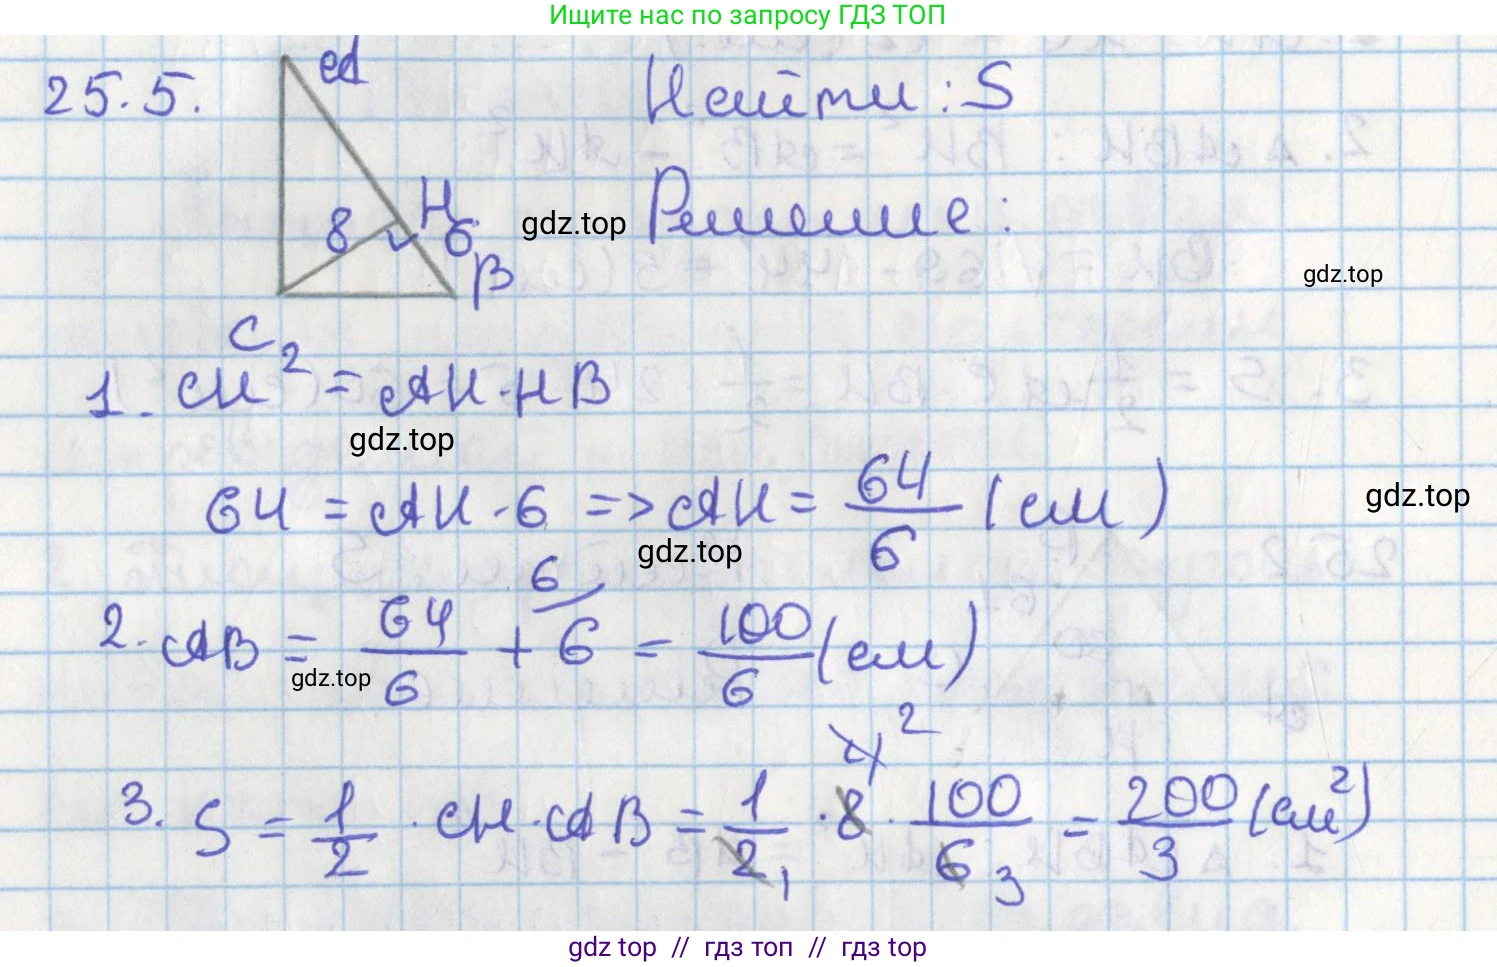 Ищите нас по запросу ГДЗ ТОП
25.5.
A
Найти: S
8
H
6
B
C
gdz.top
Решение:
gdz.top
1. CH² = AH · HB
gdz.top
64 = AH · 6 => AH = 64/6 (см)
gdz.top
gdz.top
2. AB = 64/6 + 6/6 = 100/6 (см)
gdz.top
3. S = 1/2 · CH · AB = 1/2 1 · 8 4 2 · 100/6 3 = 200/3 (см²)
gdz top // гдз топ // гдз top